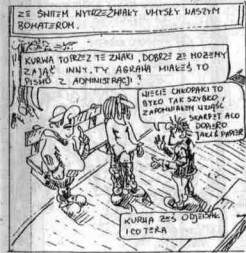 ZE ŚWITEM WYTRZEŹWIAŁY UMYSŁY NASZYM
BOHATEROM.
KURWA TO PRZEZ TE ZNAKI, DOBRZE ZE MOŻEMY
ZAJĄĆ INNY. TY AGRAHA MIAŁEŚ TO
PISMO Z ADMINISTRACJI!
WIECIE CHŁOPAKI TO
BYŁO TAK SZYBKO
ZAPOMNIAŁEM WZIĄŚĆ
SKARPET ALO
DOPIERO
JAKIŚ PAPIER
KURWA ŻEŚ ODJEBAŁ
I CO TERA